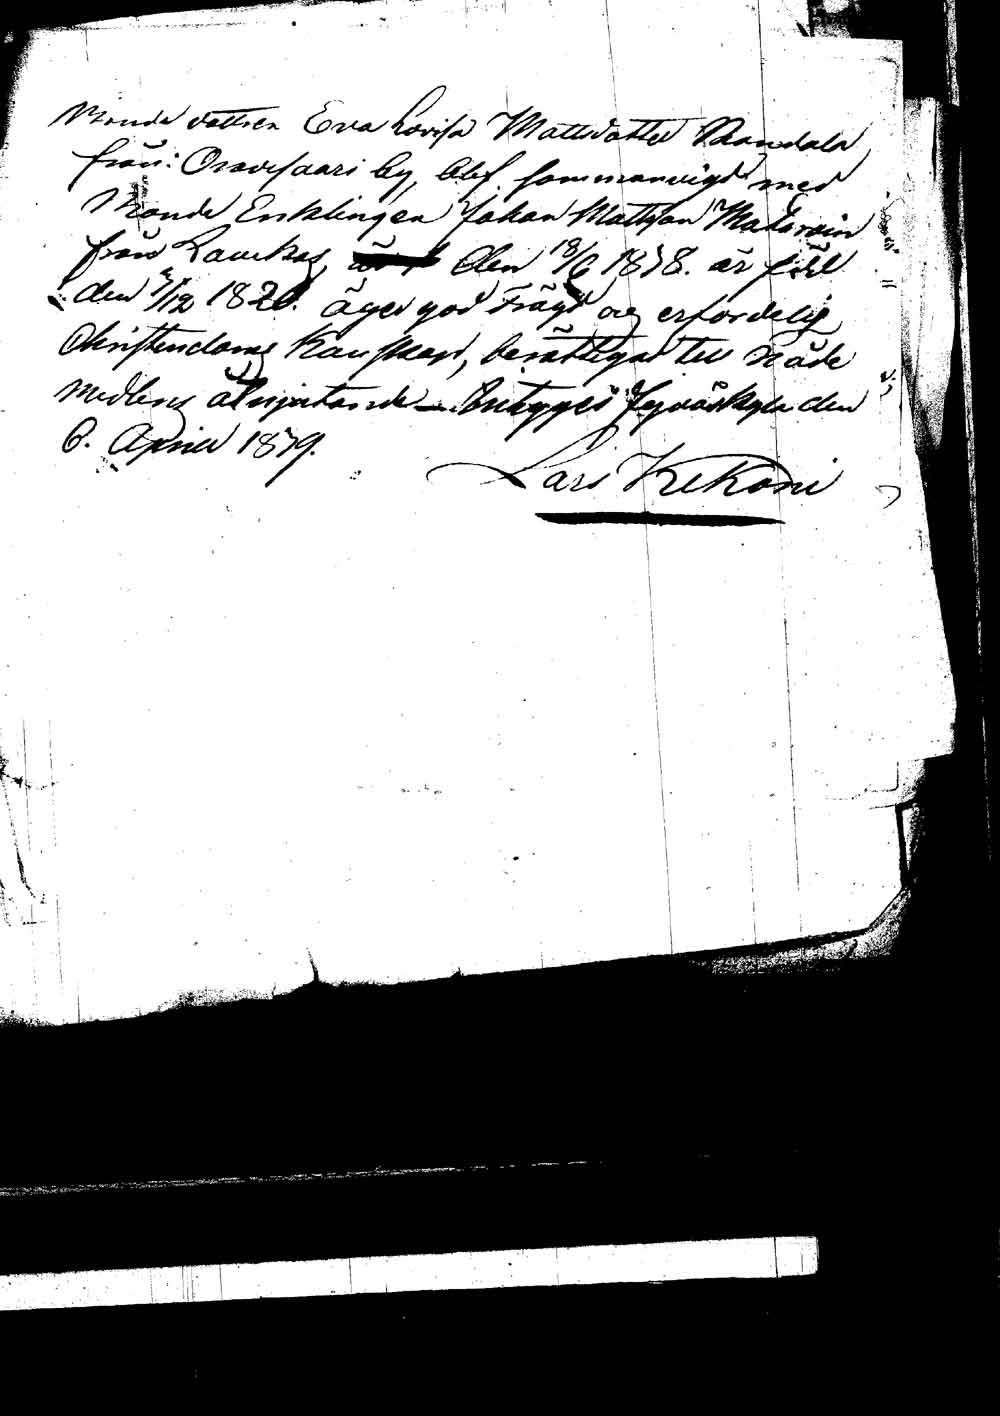 Bonde dottren Eva Lovisa Mattsdotter
från: Oravisaari by, blef sammanvigd med
Bonde Enklingen Johan Mattson
från Laukas, den 18/6 1878. är född
den 7/12 1820. äger god Frägd og erforderlig
Christendoms Kunskap, berättigad till Nåde
medlens åtnjutande – Jyväskyla den
6. April 1879.
Lars Kekoni